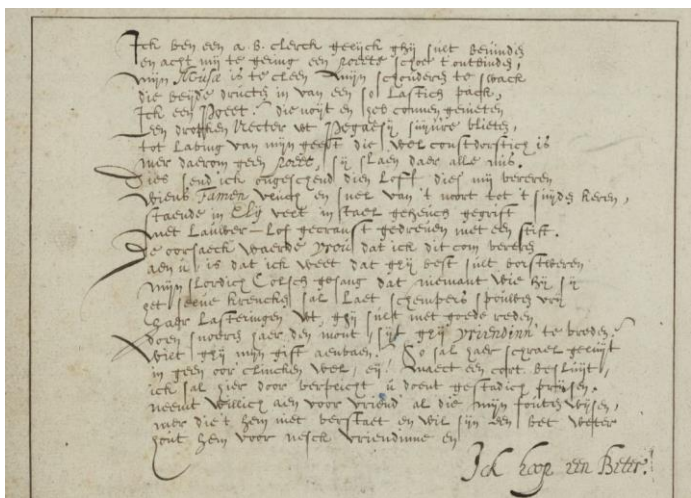 Ick ben een a. b. clerck gelijck ghij sult bevinden
en acht mij te gering een Poëete schoe t'ontbinden,
mijn Musa is te cleen mijn schouders te swack
die beijde druckt in van een so lastich pack,
Ick een Poeet? die noijt en heb connen genieten
Een droppken Necter wt Pegaesij vlieten,
tot Laving van mijn geest die wel constdorstich is
mer daerom geen Poeet, sij slaen daer alle mis.
Dies send ick ongeschend dien Loff dies mij vereren
wiens Famen vluch en snel van 't noort tot 't suijden keren,
staende in veel in stael geheuch gegrift
met Lauwer-Lof gecranst gedreven met een stift.
De oorsaeck waerde vrou dat ick dit com vereren
aen u is dat ick weet dat ghij best sult
mijn slordich Colsch gesang dat niemant wie hij sij
het selve krencken sal Laet schempers spouwen vrij
haer Lasteringen wt, ghij sult met goede reden
doen snoeren haer den mont, sijt ghij vriendinn' te vreden?
Wilt ghij mijn gift aenvaen? So sal haer schrael geluijt
in geen oor clincken wel, eij! maeckt een cort besluijt,
ick sal hier door verplicht u doent gestadich prijsen.
neemt willich aen voor vriend al die mijn fouten wijsen,
mer die 't hem niet verstaet en wil sijn een bet weter
hout hem voor nesck vriendinne en
Ick hoop een Beter.